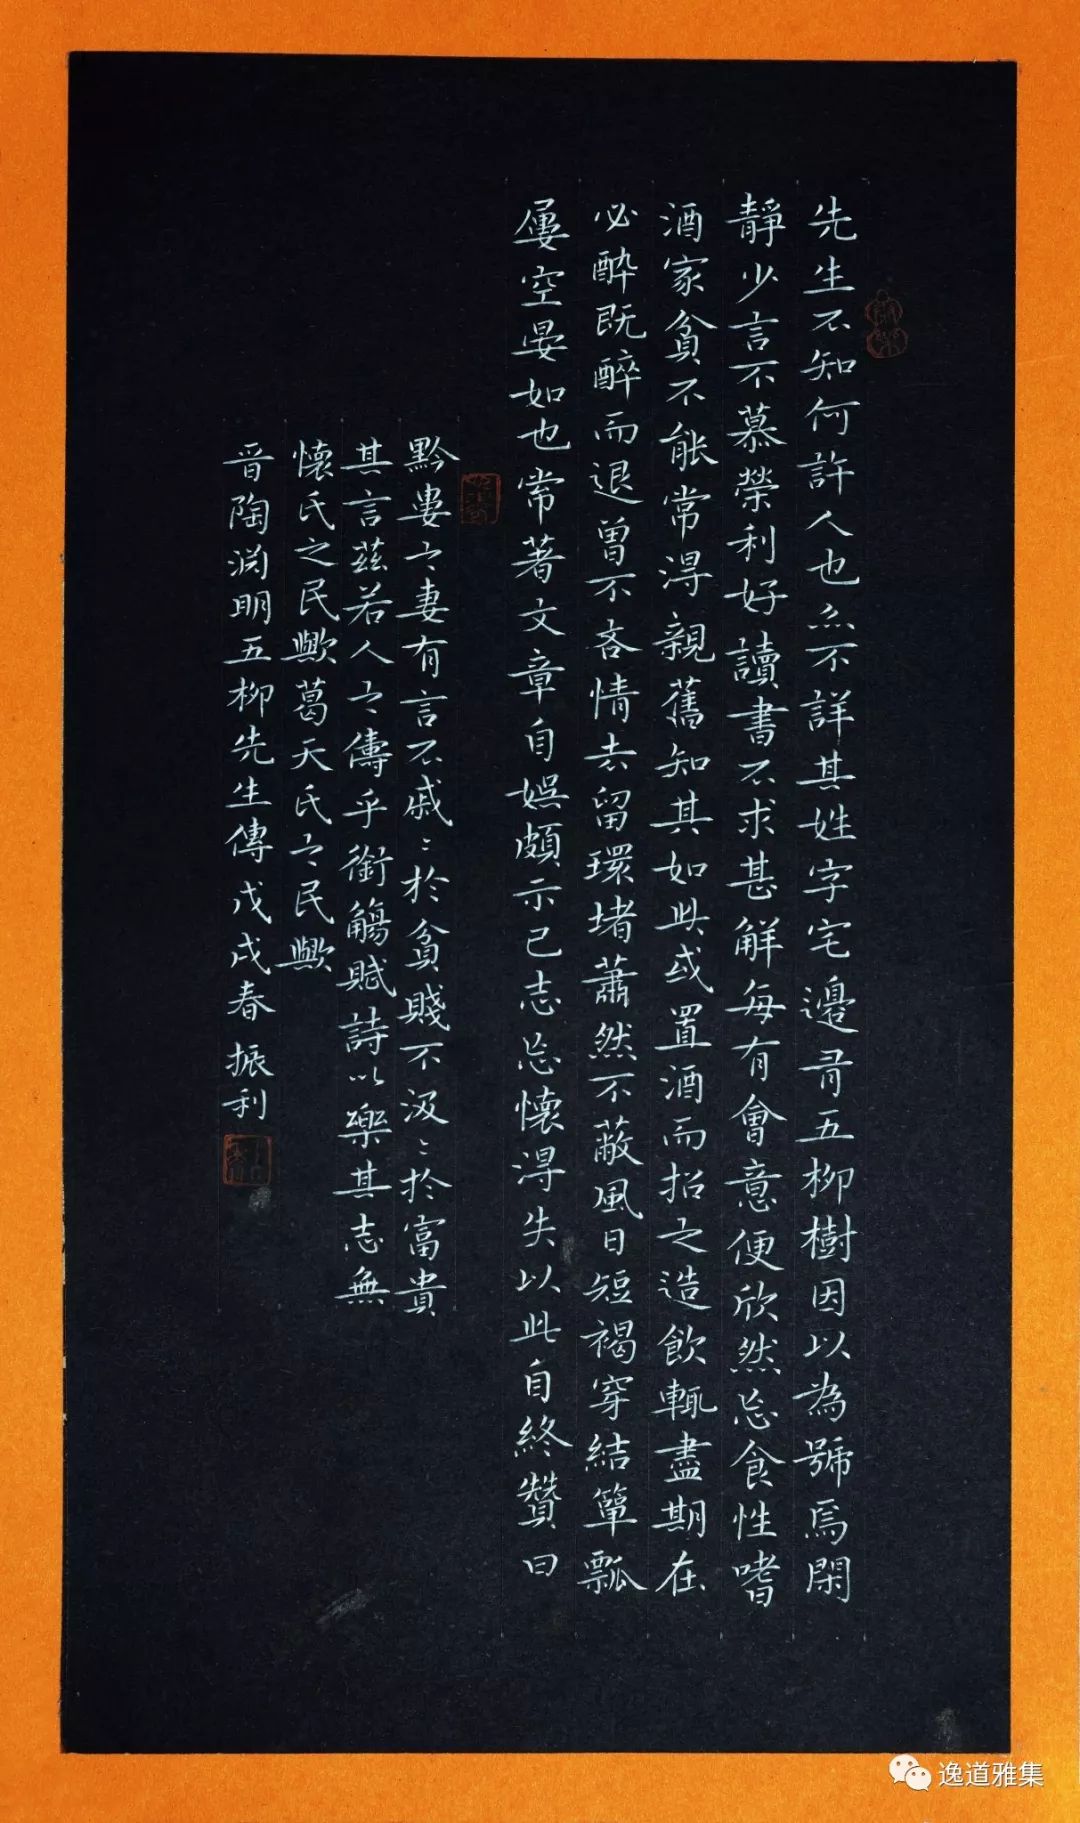 先生不知何許人也亦不詳其姓字宅邊有五柳樹因以為號焉閑
靜少言不慕榮利好讀書不求甚解每有會意便欣然忘食性嗜
酒家貧不能常得親舊知其如此或置酒而招之造飲輒盡期在
必醉既醉而退曾不吝情去留環堵蕭然不蔽風日短褐穿結簞瓢
屢空晏如也常著文章自娛頗示己志忘懷得失以此自終贊曰
黔婁之妻有言不戚〻於貧賤不汲〻於富貴
其言茲若人之儔乎銜觴賦詩以樂其志無
懷氏之民歟葛天氏之民歟
晉陶淵明五柳先生傳戊戌春振利
逸道雅集